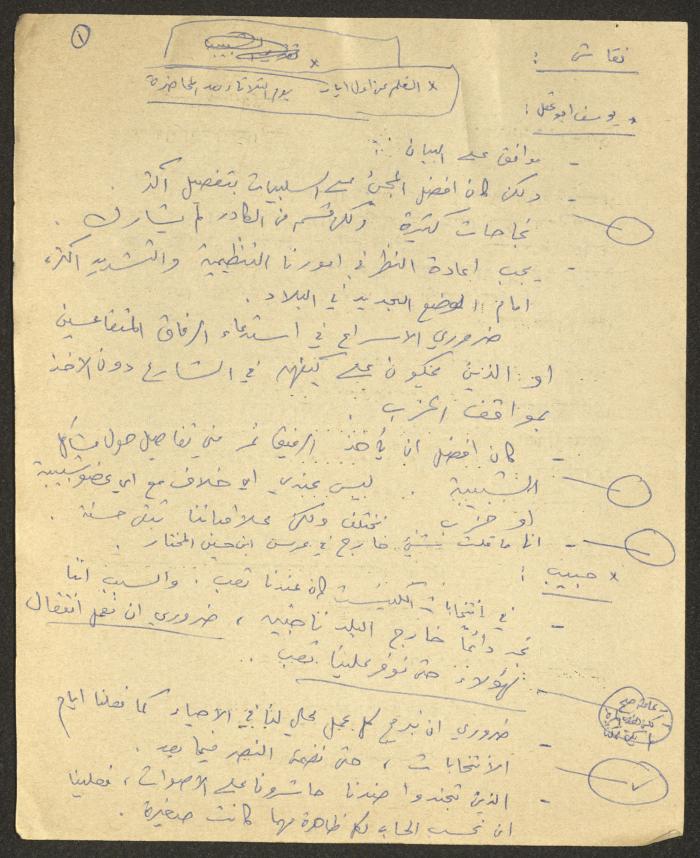 ١
نقاش :
* التعلم من اول ايات يوم الثلاثاء بعد المحاضرة
* يوسف ابو عقل :
- موافق على البيان :
- ولكن كان افضل المجيئ على السلبيات بتفصيل اكثر .
نجاحات كثيرة ولكن قسم من الكادر لم يشارك .
- يجب اعادة النظر في امورنا التنظيمية والتشديد اكثر،
امام الوضع الجديد في البلاد .
ضروري الاسراع في استدعاء الرفاق المتقاعسين
او الذين يحكون على كيفهم في الشارع دون الاخذ
بمواقف الحزب .
- كان افضل ان يأخذ الرفيق نمر مني تفاصيل حول مشاكل
الشبيبة . ليس عندي اي خلاف مع اي عضو شبيبة
او حزب نختلف ولكن علاقاتنا تبقى حسنة .
- انا ما قلت شيئ خارج في عرس ابن حسين المختار .
* حبيب :
- في انتخابات الكنيست كان عندنا تعب . والسبب اننا
نجد دائماً خارج البلد ناخبيه ، ضروري ان نعمل انتقال
لهؤلاء حتى نوفر علينا تعب ..
- ضروري ان ندمج كل عمل محلي لنا في الاحياء كما فعلنا ايام
الانتخابات ، حتى نضمن النصر فيما بعد .
- الذين تجندوا ضدنا حاشرونا على الاصوات ، فعلينا
ان نحسب الحساب لكل ظاهرة مهما كانت صغيرة .